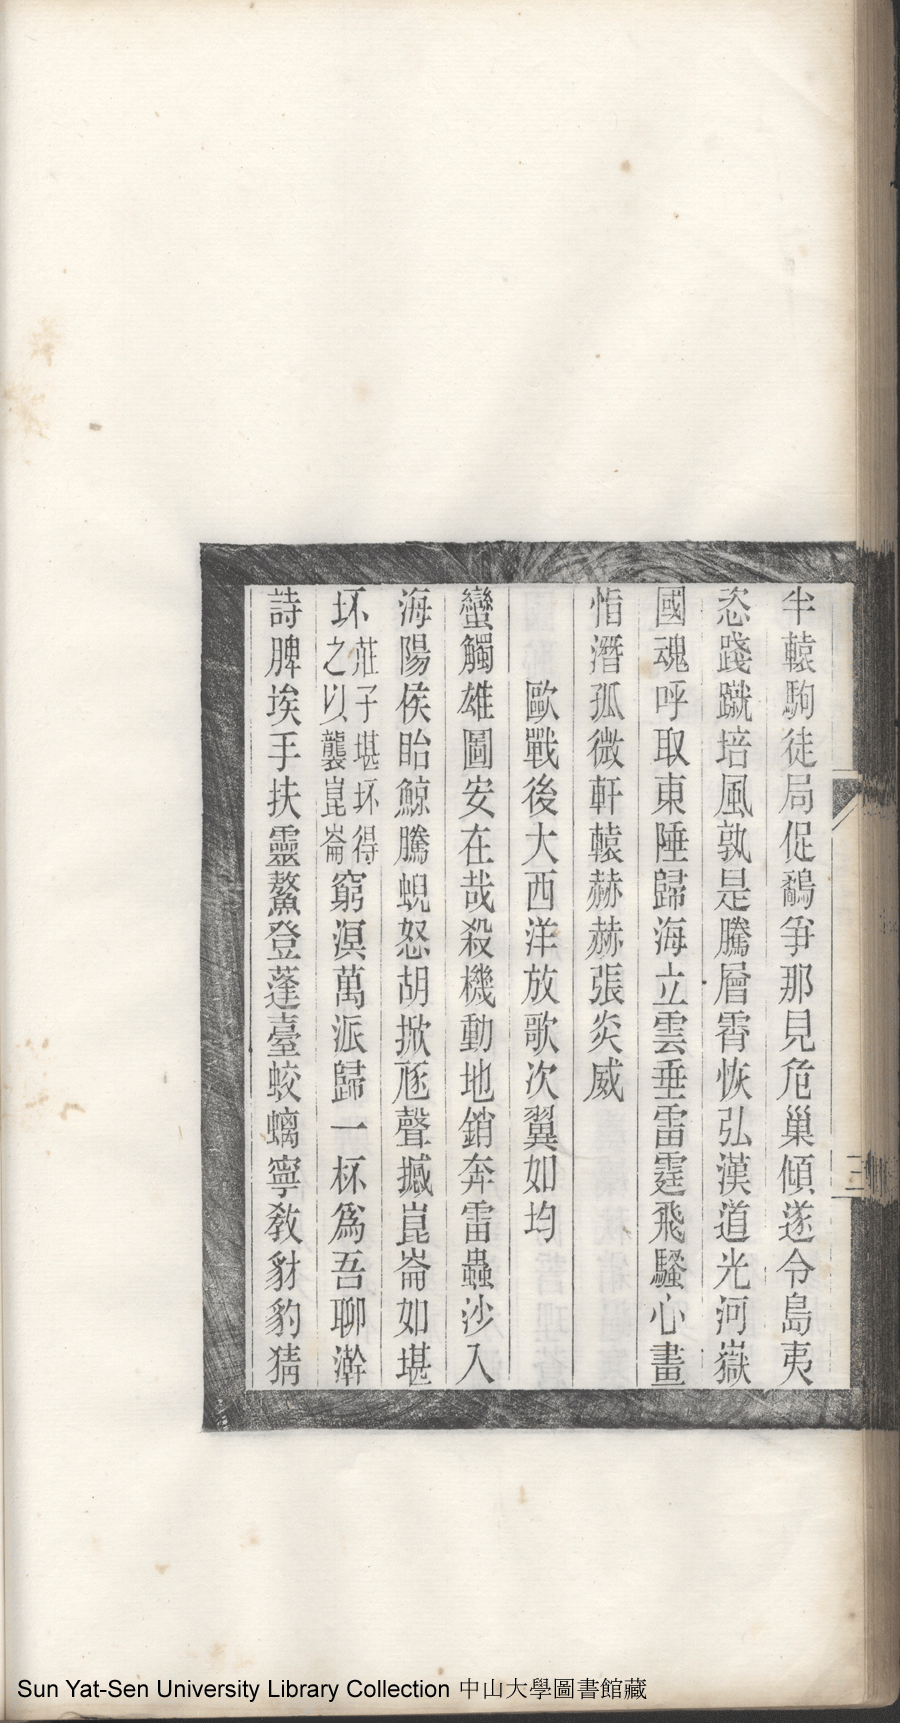 半轅駒徒局促鷸爭那見危巢傾遂令島夷
恣踐蹴培風孰是騰層霄恢弘漢道光河嶽
國魂呼取東陲歸海立雲垂雷霆飛騷心畫
悟潛孤微軒轅赫赫張炎威
歐戰後大西洋放歌次翼如均
蠻觸雄圖安在哉殺機動地銷奔雷蟲沙入
海陽侯眙鯨騰蜺怒胡掀豗聲撼崑崙如堪
坏莊子堪坏得之以襲崑崙窮溟萬派歸一杯為吾聊澣
詩脾埃手扶靈鰲登蓬臺蛟螭寧教豺豹猜
三
Sun Yat-Sen University Library Collection 中山大學圖書館藏